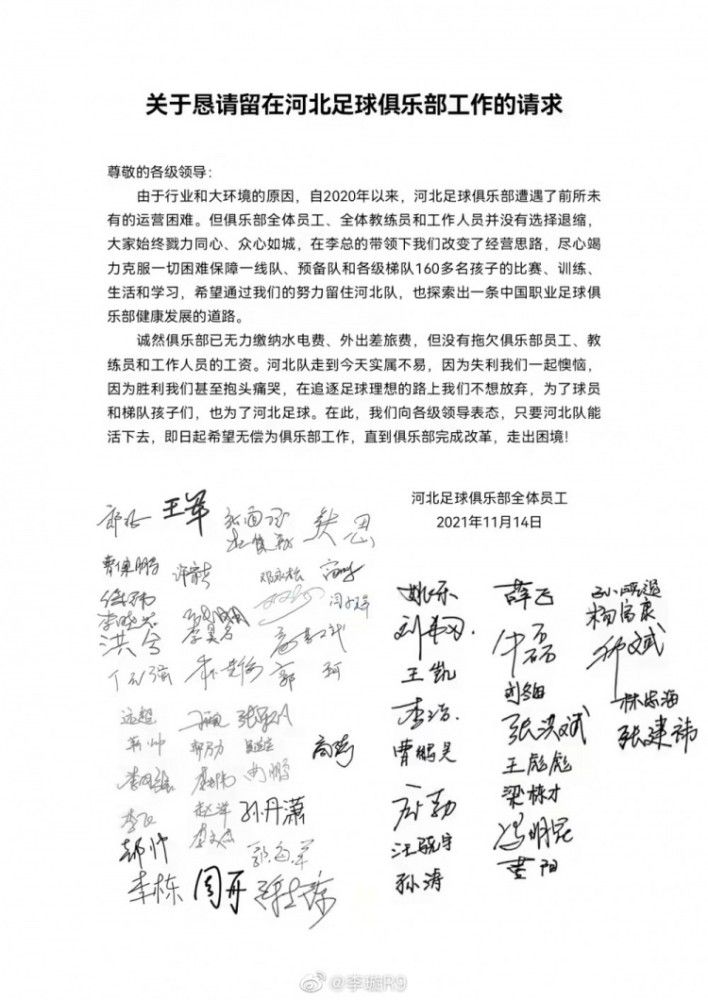 关于恳请留在河北足球俱乐部工作的请求
尊敬的各级领导：
由于行业和大环境的原因，自2020年以来，河北足球俱乐部遭遇了前所未
有的运营困难。但俱乐部全体员工、全体教练员和工作人员并没有选择退缩，
大家始终戮力同心、众心如城，在李总的带领下我们改变了经营思路，尽心竭
力克服一切困难保障一线队、预备队和各级梯队160多名孩子的比赛、训练、
生活和学习，希望通过我们的努力留住河北队，也探索出一条中国职业足球俱
乐部健康发展的道路。
诚然俱乐部已无力缴纳水电费、外出差旅费，但没有拖欠俱乐部员工、教
练员和工作人员的工资。河北队走到今天实属不易，因为失利我们一起懊恼，
因为胜利我们甚至抱头痛哭，在追逐足球理想的路上我们不想放弃，为了球员
和梯队孩子们，也为了河北足球。在此，我们向各级领导表态，只要河北队能
活下去，即日起希望无偿为俱乐部工作，直到俱乐部完成改革，走出困境！
河北足球俱乐部全体员工
2021年11月14日
王军
洪兮
郭珂
远超
孙丹潇
李栋
周丹
姚乐
王凯
李浩
曹鹏昊
孙涛
薛飞
张洪斌
王彪彪
梁栋才
冯明昆
杨富康
林忠海
张建祎
@李璇R9